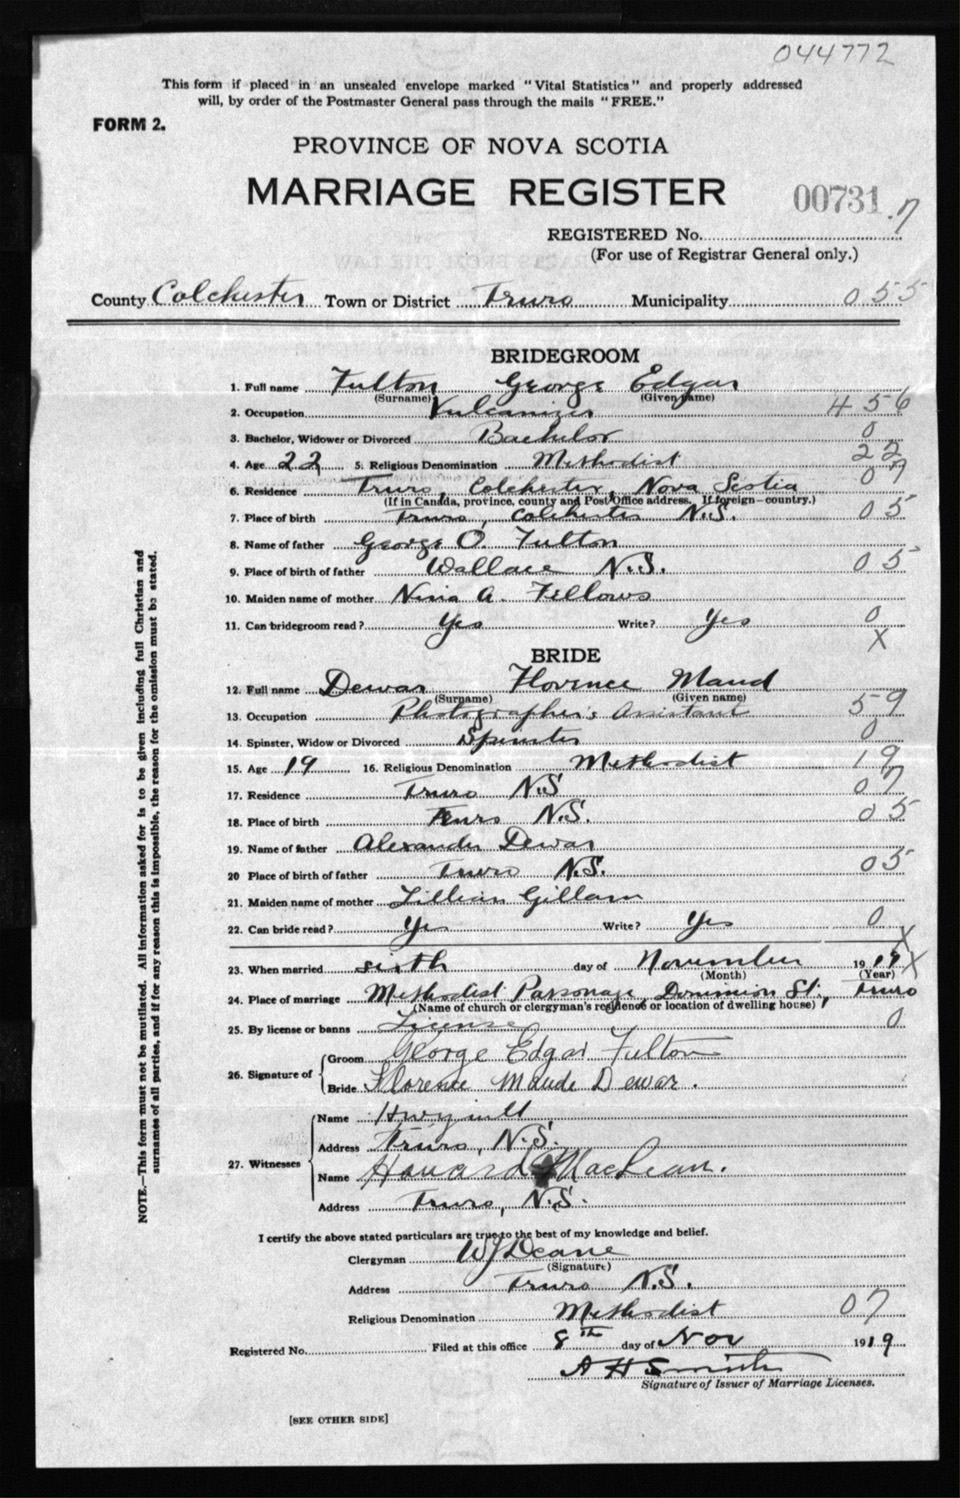 044772
This form if placed in an unsealed envelope marked "Vital Statistics" and properly addressed
will, by order of the Postmaster General pass through the mails "FREE."
FORM 2.
PROVINCE OF NOVA SCOTIA
MARRIAGE REGISTER 00731.7
REGISTERED No.
(For use of Registrar General only.)
County Colchester Town or District Truro Municipality 055
BRIDEGROOM
1. Full name Fulton George Edgar
(Surname) (Given name)
2. Occupation Vulcanizer 456
3. Bachelor, Widower or Divorced Bachelor 0
4. Age 22 5. Religious Denomination Methodist 22
6. Residence Truro, Colchester, Nova Scotia 07
(If in Canada, province, county and Post Office address. If foreign—country.)
7. Place of birth Truro, Colchester N.S. 05
8. Name of father George O. Fulton
9. Place of birth of father Wallace N.S. 05
10. Maiden name of mother Nina A. Fellows
11. Can bridegroom read? Yes Write? Yes 0
X
BRIDE
12. Full name Dewar Florence Maud
(Surname) (Given name)
13. Occupation Photographer's Assistant 59
14. Spinster, Widow or Divorced Spinster 0
15. Age 19 16. Religious Denomination Methodist 19
17. Residence Truro N.S 07
18. Place of birth Truro N.S. 05
19. Name of father Alexander Dewar
20 Place of birth of father Truro N.S. 05
21. Maiden name of mother Lillian Gillam
22. Can bride read? Yes Write? Yes 0
X
23. When married sixth day of November 1919 X
(Month) (Year)
24. Place of marriage Methodist Parsonage, Dominion St., Truro
(Name of church or clergyman's residence or location of dwelling house)
25. By license or banns License 0
26. Signature of Groom George Edgar Fulton
Bride Florence Maude Dewar.
27. Witnesses
Name
Address Truro, N.S.
Name Howard MacLean.
Address Truro, N.S.
I certify the above stated particulars are true to the best of my knowledge and belief.
Clergyman WJ Deane
(Signature)
Address Truro N.S.
Religious Denomination Methodist 07
Registered No. Filed at this office 8th day of Nov 1919
A H Smith
Signature of Issuer of Marriage Licenses.
[SEE OTHER SIDE]
NOTE.—This form must not be mutilated. All information asked for is to be given including full Christian and
surnames of all parties, and if for any reason this is impossible, the reason for the omission must be stated.